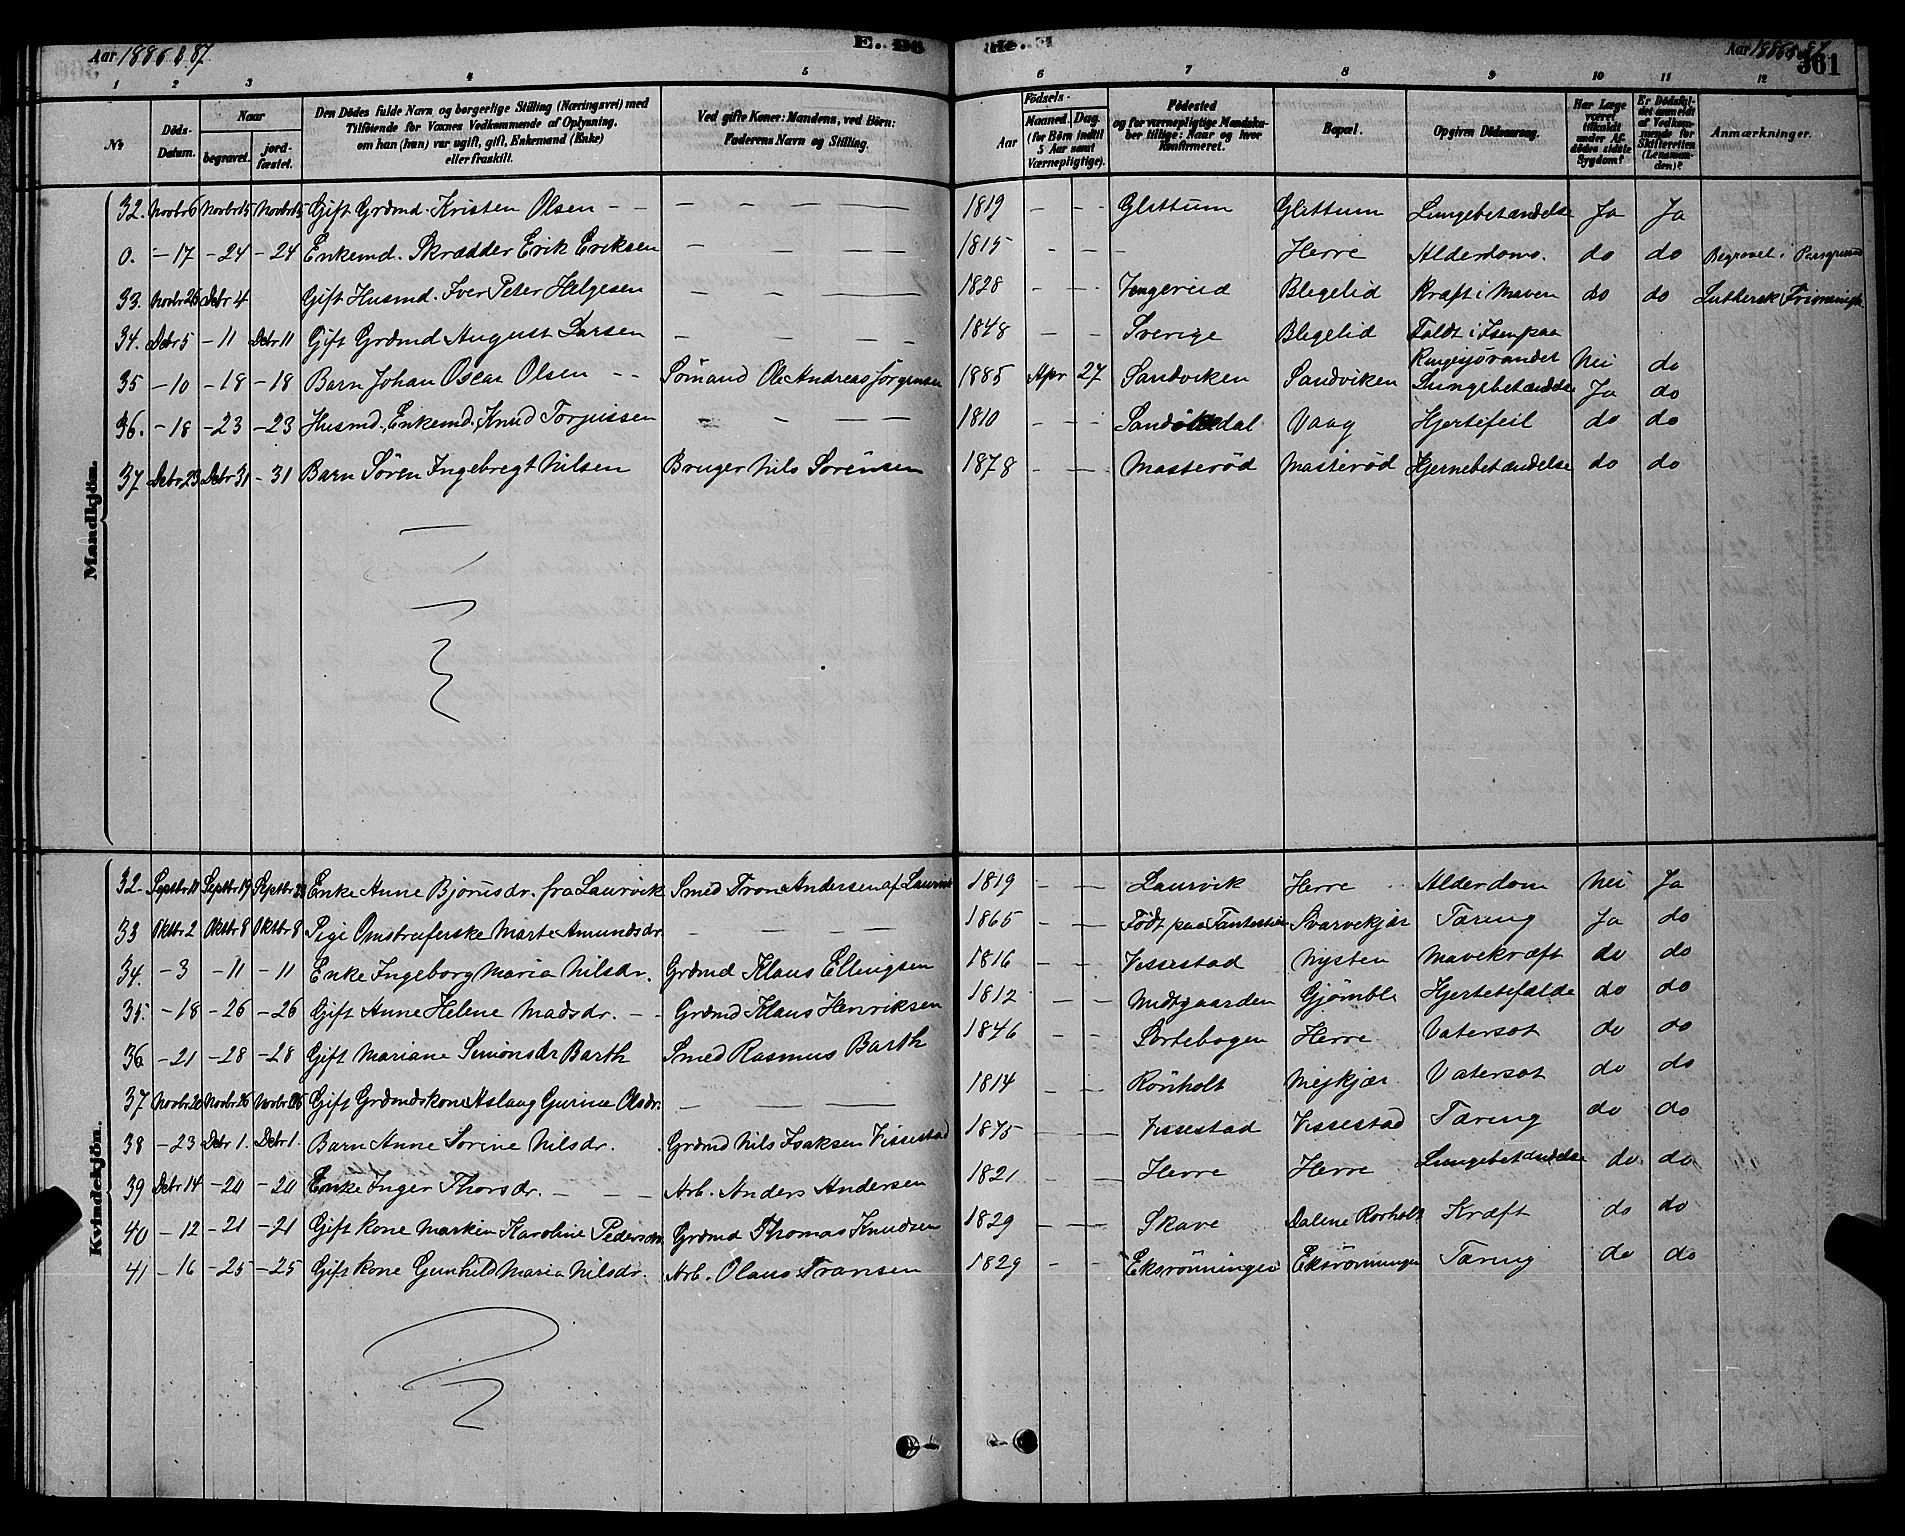 Aar 1886 & 87.
E. Dö
de. E
Aar 1886 & 87
361
1 2 3 4 5 6 7 8 9 10 11 12
№
Döds-Datum.
Naar
begravet.
jord-fæstet.
Den Dödes fulde Navn og borgerlige Stilling (Næringsvei) med Tilföiende for Voxnes Vedkommende af Oplysning, om han (hun) var ugift, gift, Enkemand (Enke) eller fraskilt.
Ved gifte Koner: Mandens, ved Börn: Faderens Navn og Stilling.
Födsels-
Aar
Maaned. Dag.
(for Börn indtil 5 Aar samt Værnepligtige).
Födested og for værnepligtige Mandskaber tillige: Naar og hvor Konfirmeret.
Bopæl.
Opgiven Dödsaarsag.
Har Læge været tilkaldt under Afdödes sidste Sygdom?
Er Dödsfaldet anmeldt af Vedkommende for Skifteretten (Lensmanden)?
Anmærkninger.
Mandkjön.
32. Novbr 6 Novbr 15 Novbr 15 Gift Grdmd. Kristen Olsen - - — — — 1819 - - Glittum Glittum Lungebetændelse Ja Ja
0. - 17 - 24 - 24 Enkemd. Skrædder Erik Eriksen — — — 1815 - - - Herre Alderdoms. do do Begravet i Porsgrund
33. Novbr 26 Debr 4 Gift Husmd. Iver Peter Helgesen — — — 1828 - - Blegelid Kræft i Maven do do Luthersk Frimenigh.
34. Debr 5 - 11 Debr 11 Gift Grdmd August Larsen — — — 1848 - - Sverige Blegelid Faldt i Isen paa
Nei do
35 - 10 - 18 - 18 Barn Johan Oscar Olsen - - Sömand Ole Andreas Jörgensen 1885 Apr 27 Sandviken Sandviken Lungebetændelse Ja do
36. - 18 - 23 - 23 Husmd. Enkemd. Knud Torjussen — — — 1810 - - Sandökedal Vaag Hjertefeil do do
37 Debr 23 Debr 31 - 31 Barn Sören Ingebregt Nilsen Bruger Nils Sörensen 1878 - - Masteröd Masteröd Hjernebetændelse do do
Kvindekjön.
32. Septbr 11 Septbr 19 Septbr Enke Anne Bjørnsdr. fra Laurvik Smed Tron Andersen af Laurvik 1819 - - Laurvik Herre Alderdom Nei Ja
33 Oktbr 2 Oktbr 8 Oktbr 8 Pige Omstreiferske Marte Amundsdr. — — — 1865 - - Född paa Svarvekjær Tæring Ja do
34. - 3 - 11 - 11 Enke Ingeborg Maria Nilsdr. Grdmd Klaus Ellingsen 1816 - - Vissestad Nysten Mavekræft do do
35. - 18 - 26 - 26 Gift Anne Helene Madsdr. - - Grdmd Klaus Henriksen 1812 - - Midtgaarden Gjömble Hjertetilfælde do do
36 - 21 - 28 - 28 Gift Mariane Simonsdr Barth Smed Rasmus Barth 1846 - - Sortebogen Herre Vatersot do do
37 Novbr 20 Novbr 26 Novbr 26 Gift Grdmdskone Aslaug Gurine Olsdr. — — — 1814 - - Rönholt Mejkjær Vatersot do do
38 - 23 Debr 1. Debr 1. Barn Anne Sorine Nilsdr. Grdmd Nils Isaksen Vissestad 1875 - - Vissestad Vissestad Tæring do do
39 Debr 14 - 20 - 20 Enke Inger Thorsdr. - - - Arb. Anders Andersen 1821 - - Herre Herre Lungebetændelse do do
40 - 12 - 21 - 21 Gift kone Marken Karoline Pedersdr. Grdmd Thomas Knudsen 1829 - - Skave Dalene Rorholt Kræft do do
41 - 16 - 25 - 25 Gift kone Gunhild Maria Nilsdr. Arb. Olaus Fransen 1829 - - Eksrönningen Eksrönningen Tæring do do